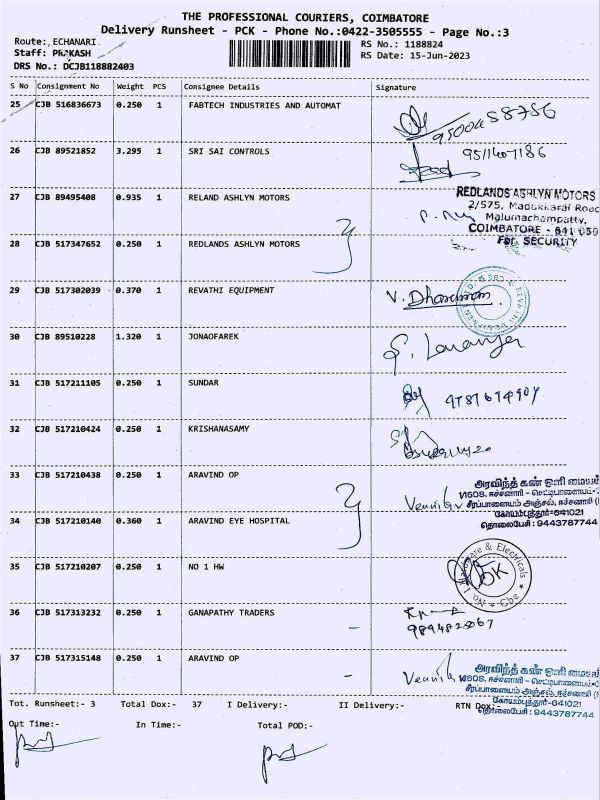 THE PROFESSIONAL COURIERS, COIMBATORE
Delivery Runsheet - PCK - Phone No.:0422-3505555 - Page No.:3
Route: ECHANARI.
Staff: PRAKASH
DRS No.: DCJB118882403
RS No.: 1188824
RS Date: 15-Jun-2023
S No Consignment No Weight PCS Consignee Details Signature
25 CJB 516836673 0.250 1 FABTECH INDUSTRIES AND AUTOMAT
26 CJB 89521852 3.295 1 SRI SAI CONTROLS
27 CJB 89495408 0.935 1 RELAND ASHLYN MOTORS
REDLANDS ASHLYN MOTORS
2/575, Madukkarai Road
Malumachampatty,
COIMBATORE - 641 050
For SECURITY
28 CJB 517347652 0.250 1 REDLANDS ASHLYN MOTORS
29 CJB 517302039 0.370 1 REVATHI EQUIPMENT
30 CJB 89510228 1.320 1 JONAOFAREK
31 CJB 517211105 0.250 1 SUNDAR
32 CJB 517210424 0.250 1 KRISHANASAMY
33 CJB 517210438 0.250 1 ARAVIND OP
அரவிந்த் கண் ஒளி மையம்
கோயம்புத்தூர்-641021
தொலைபேசி : 9443787744
34 CJB 517210140 0.360 1 ARAVIND EYE HOSPITAL
35 CJB 517210207 0.250 1 NO 1 HW
36 CJB 517313232 0.250 1 GANAPATHY TRADERS
37 CJB 517315148 0.250 1 ARAVIND OP
அரவிந்த் கண் ஒளி மையம்
கோயம்புத்தூர்-641021
தொலைபேசி : 9443787744
Tot. Runsheet:- 3 Total Dox:- 37 I Delivery:- II Delivery:- RTN Dox:-
Out Time:- In Time:- Total POD:-